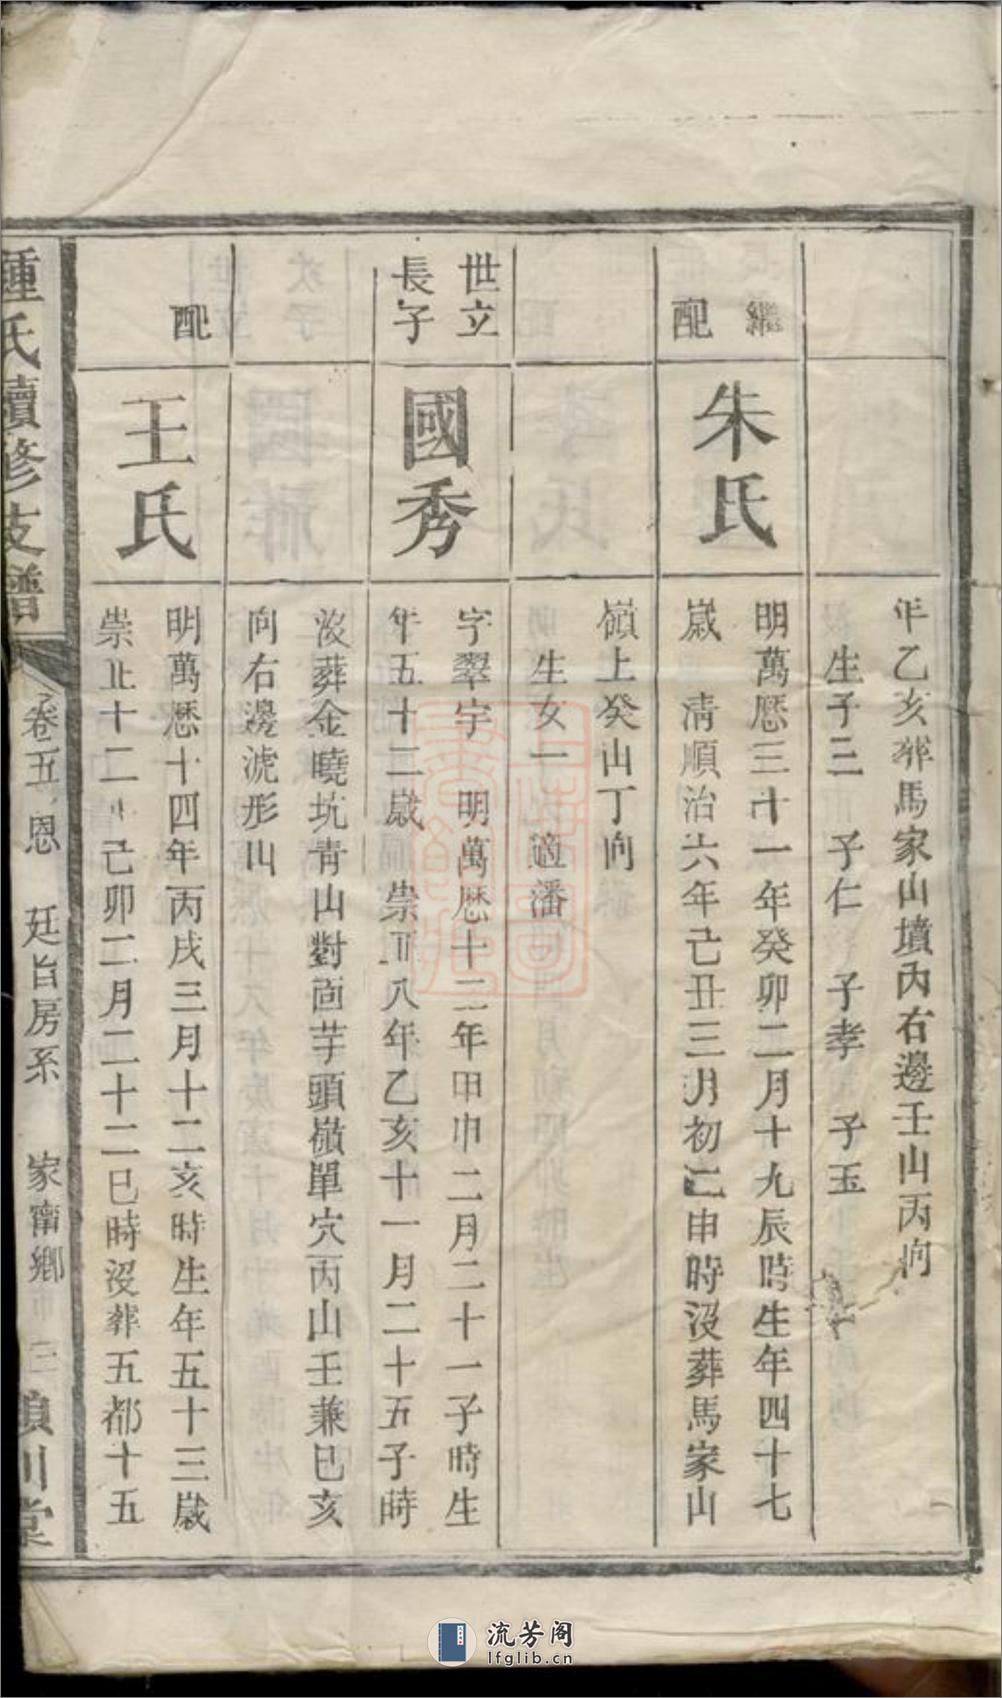 年乙亥葬馬家山墳內右邊壬山丙向
生子三　子仁　子孝　子玉
繼配
朱氏
明萬厯三十一年癸卯二月十九辰時生年四十七
歲　清順治六年己丑三月初二申時沒葬馬家山
嶺上癸山丁向
生女一　適潘
世立
長子
國秀
字翠宇　明萬厯十二年甲申二月二十一子時生
年五十二歲　崇正八年乙亥十一月二十五子時
沒葬金曉坑青山對面芋頭嶺單穴丙山壬兼巳亥
向右邊滮形山
配
王氏
明萬厯十四年丙戌三月十二亥時生年五十三歲
崇正十二年己卯二月二十二巳時沒葬五都十五
鍾氏續修支譜
卷五恩　廷旨房系　家甯鄉　三　潁川堂
流芳阁
lfglib.cn